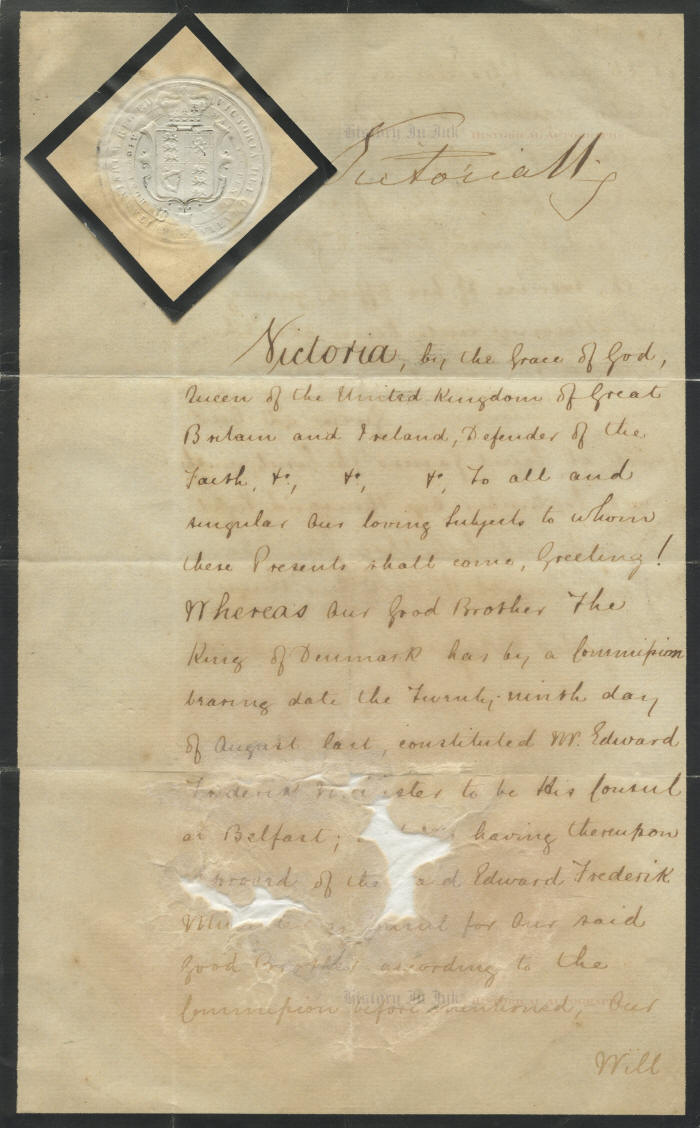 History In Ink
HISTORICAL AUTOGRAPHS
Victoria R
Victoria, by the Grace of God,
Queen of the United Kingdom of Great
Britain and Ireland, Defender of the
Faith, &c, &c, &c, To all and
singular Our loving Subjects to whom
these Presents shall come, Greeting!
Whereas Our Good Brother The
King of Denmark has by a Commission
bearing date the Twenty-ninth day
of August last, constituted Mr. Edward
Frederik to be His Consul
at Belfast; having thereupon
approved of the said Edward Frederik
for Our said
Good Brother according to the
Commission before mentioned, Our
History In Ink HISTORICAL AUTOGRAPHS
Will